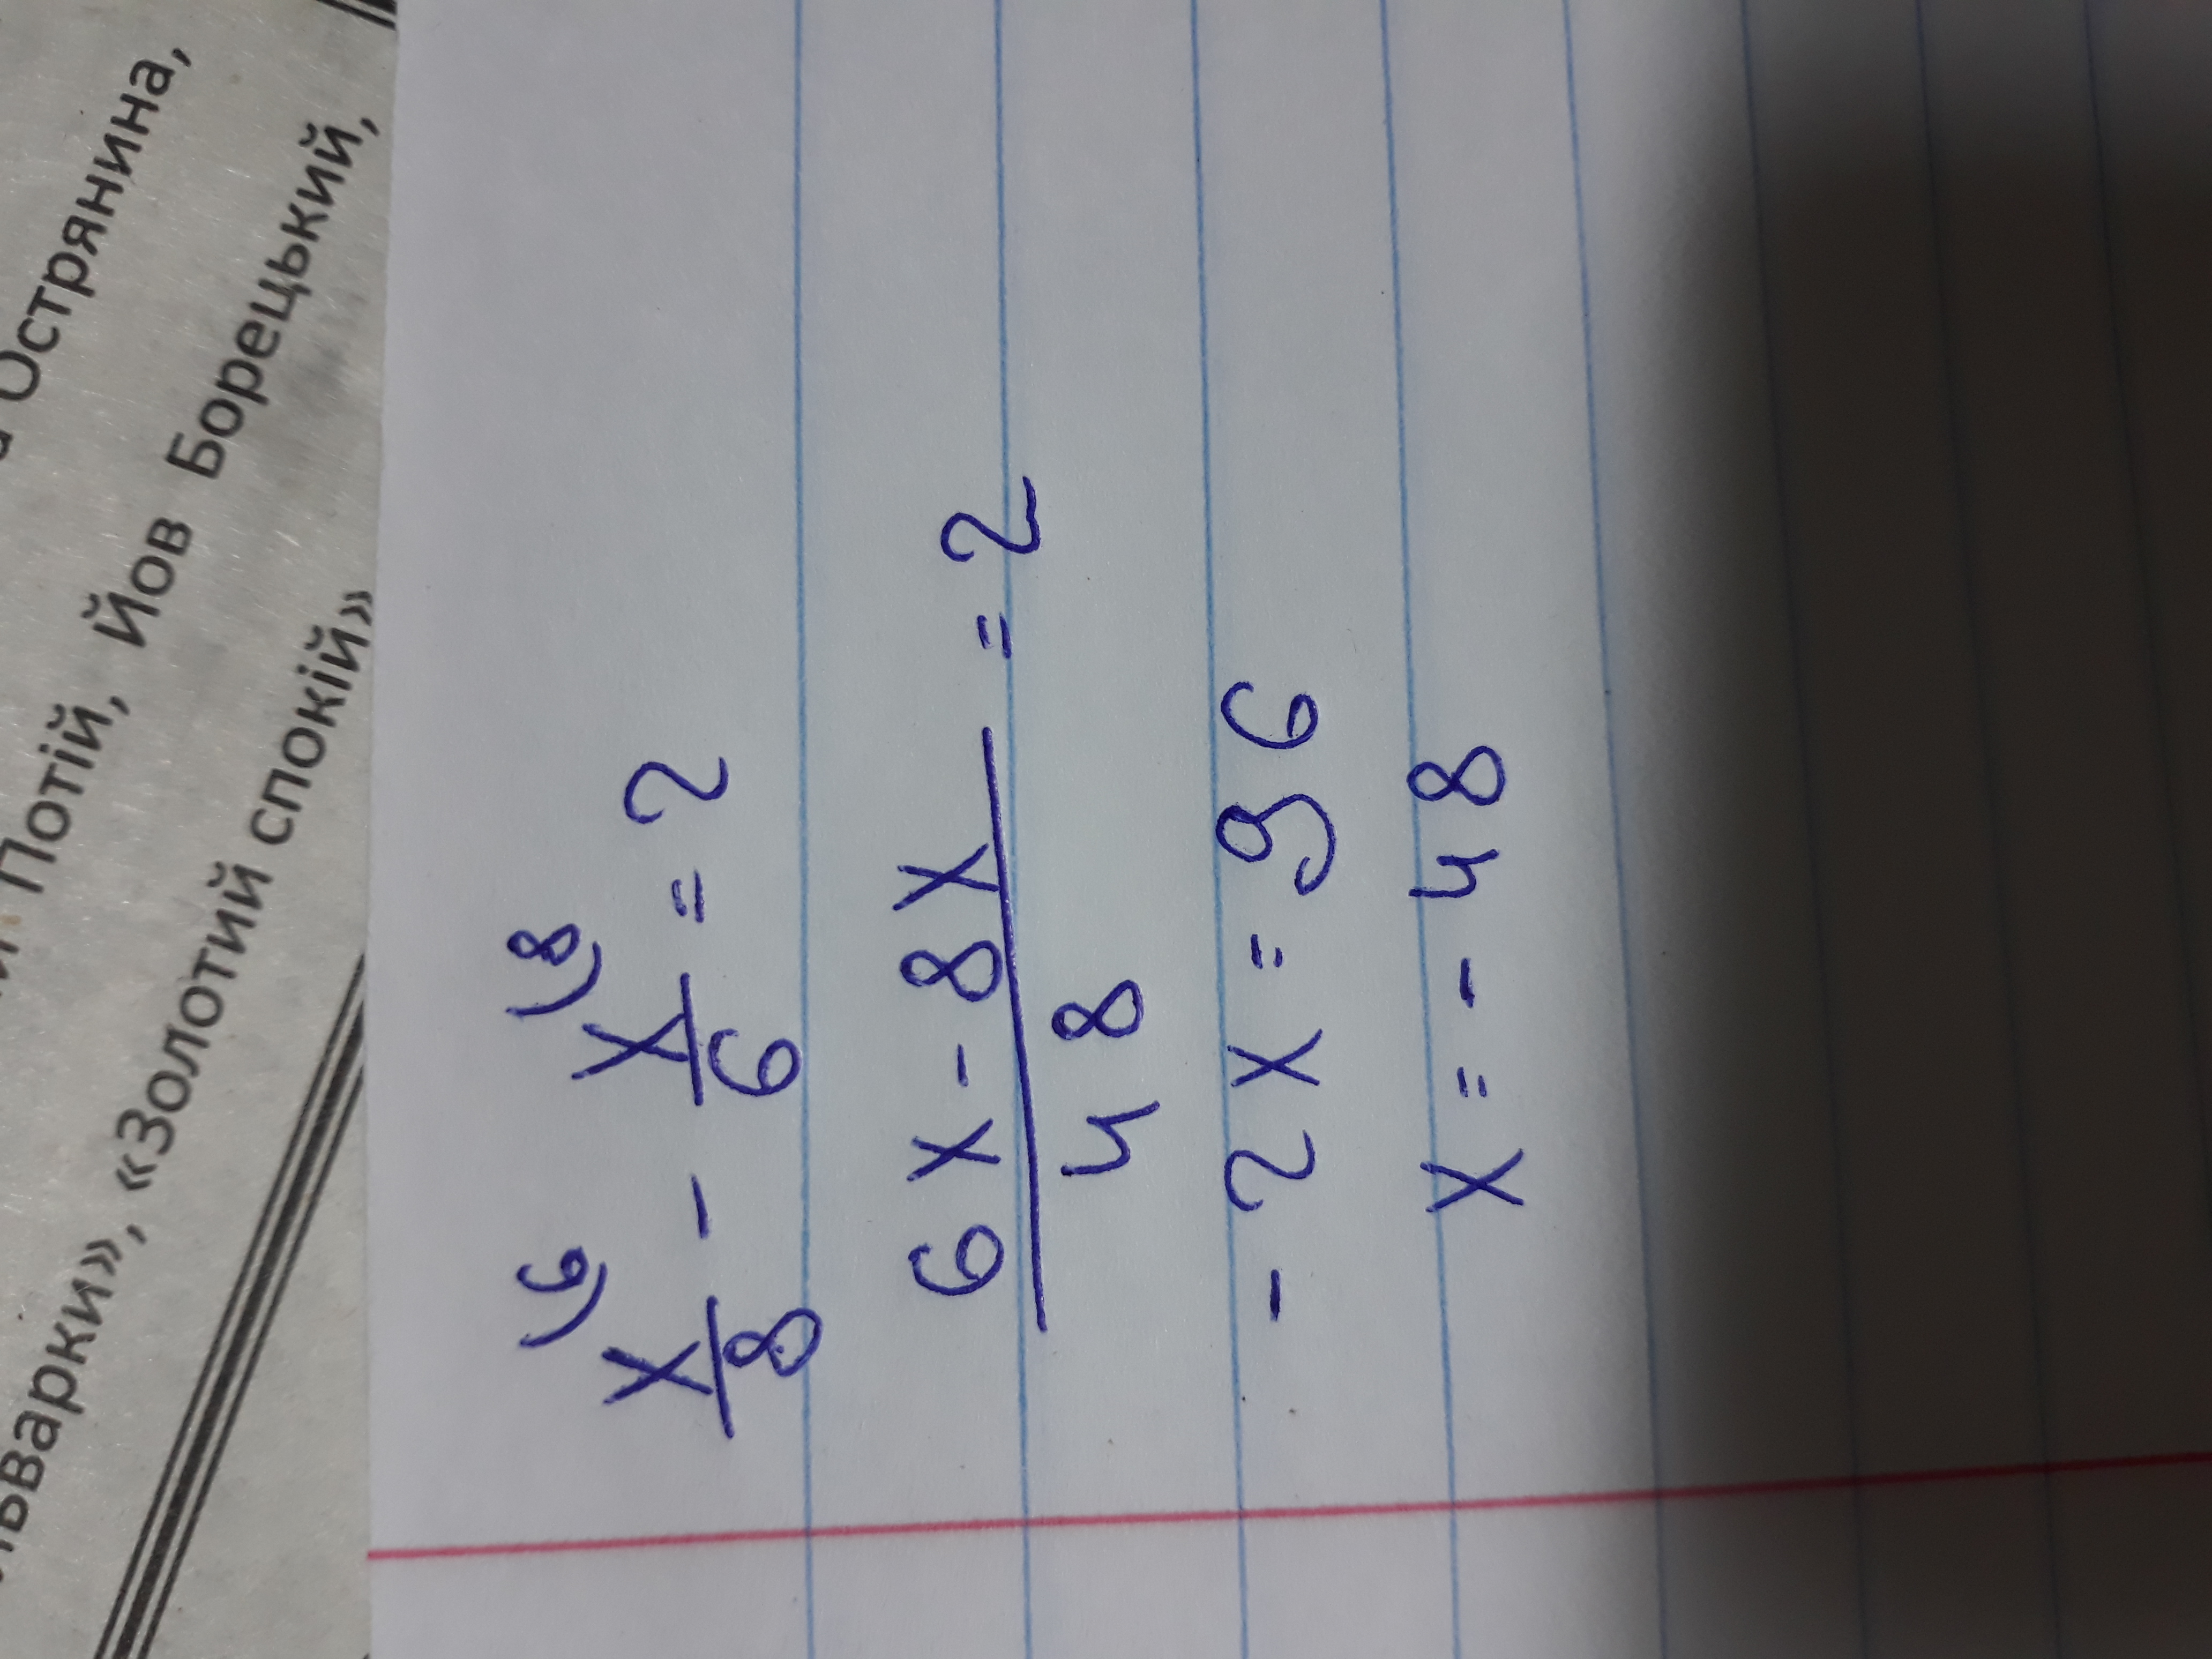 Острянина,
Потій, Йов Борецький,
льварки», «Золотий спокій»
x/8 6) - x/6 8) = 2
6x - 8x / 48 = 2
- 2x = 96
x = - 48